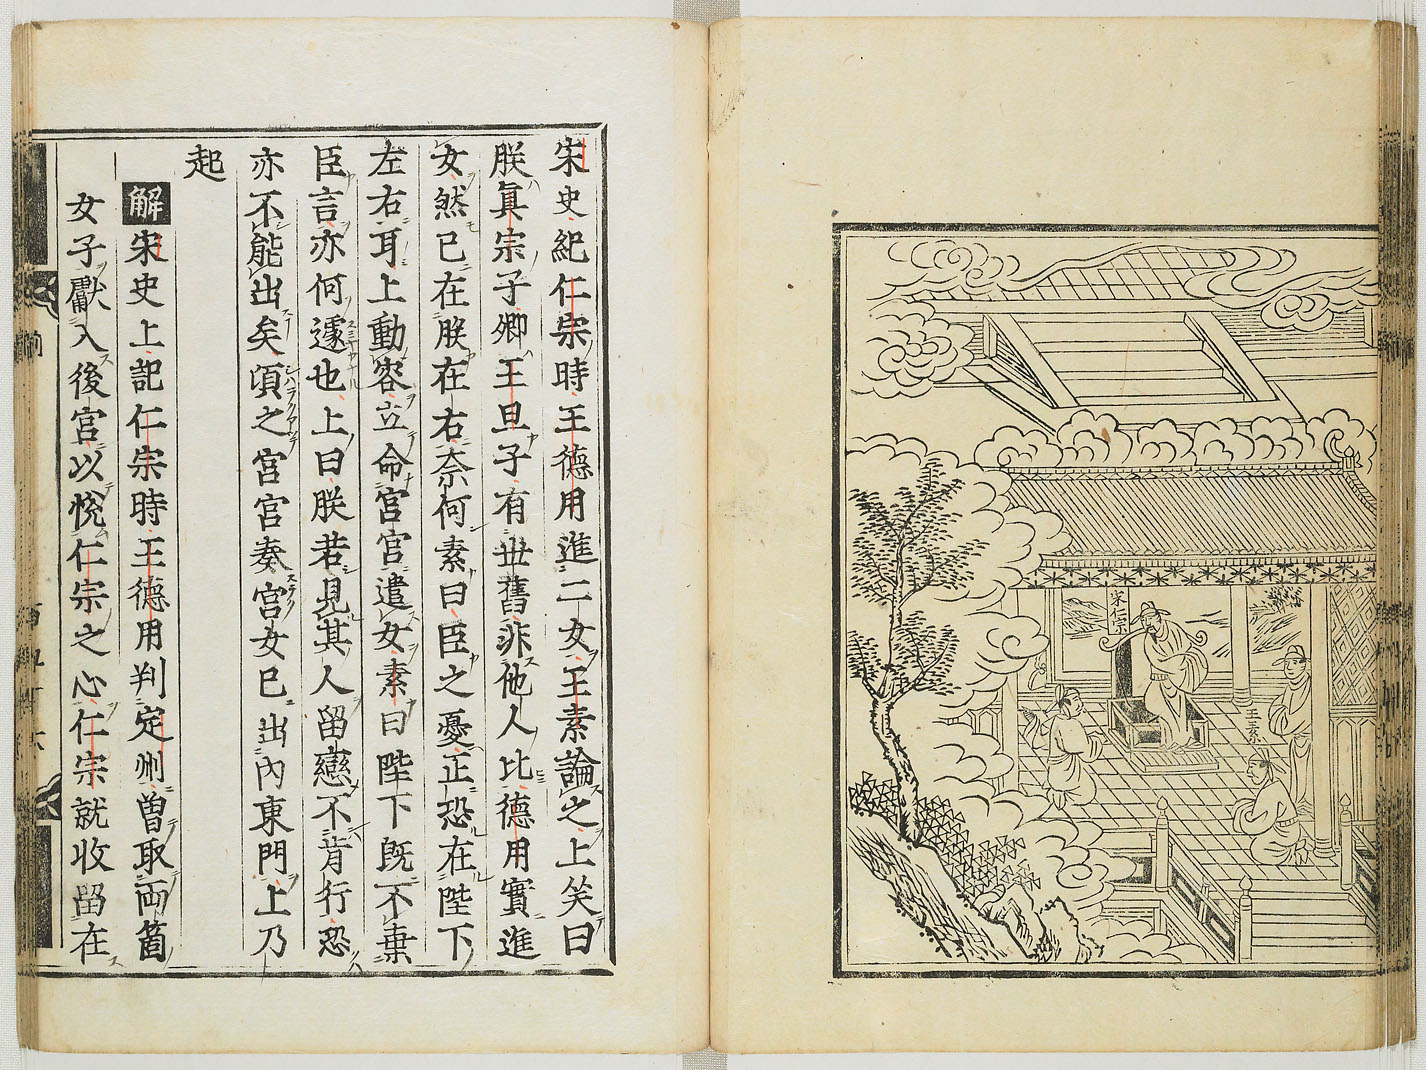 宋仁宗
王素
宋史紀仁宗時王德用進二女王素論之上笑曰
朕眞宗子卿王旦子有世舊非他人比德用實進
女然已在朕在右奈何素曰臣之憂正恐在陛下
左右耳上動容立命宮官遣女素曰陛下既不棄
臣言亦何遽也上曰朕若見其人留戀不肯行恐
亦不能出矣頃之宮官奏宮女已出內東門上乃
起
解宋史上記仁宗時王德用判定州曾取両箇
女子獻入後宮以悅仁宗之心仁宗就收留在